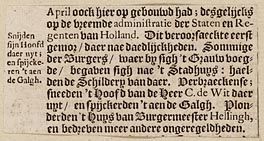 April oock hier op gebouwd had: desgelijcks
op de vreemde administratie der Staten en Re-
genten van Holland. Dit veroorsaeckte eerst
gemor/ daer nae daedlijckheden. Sommige
der Burgers/ waer by sigh 't Grauw voeg-
de/ begaben sigh nae 't Stadhuys: hael-
den de Schildery van daer. Verbraeckense:
sneeden 't Hoofd van de Heer C. de Wit daer
uyt/ en spijckerden 't aen de Galgh. Plon-
derden 't Huys van Burgermeester Hellingh,
en bedreven meer andere ongeregeldheden.
Snijden
sijn Hoofd
daer uyt;
en spijcke-
ren 't aen
de Galgh.